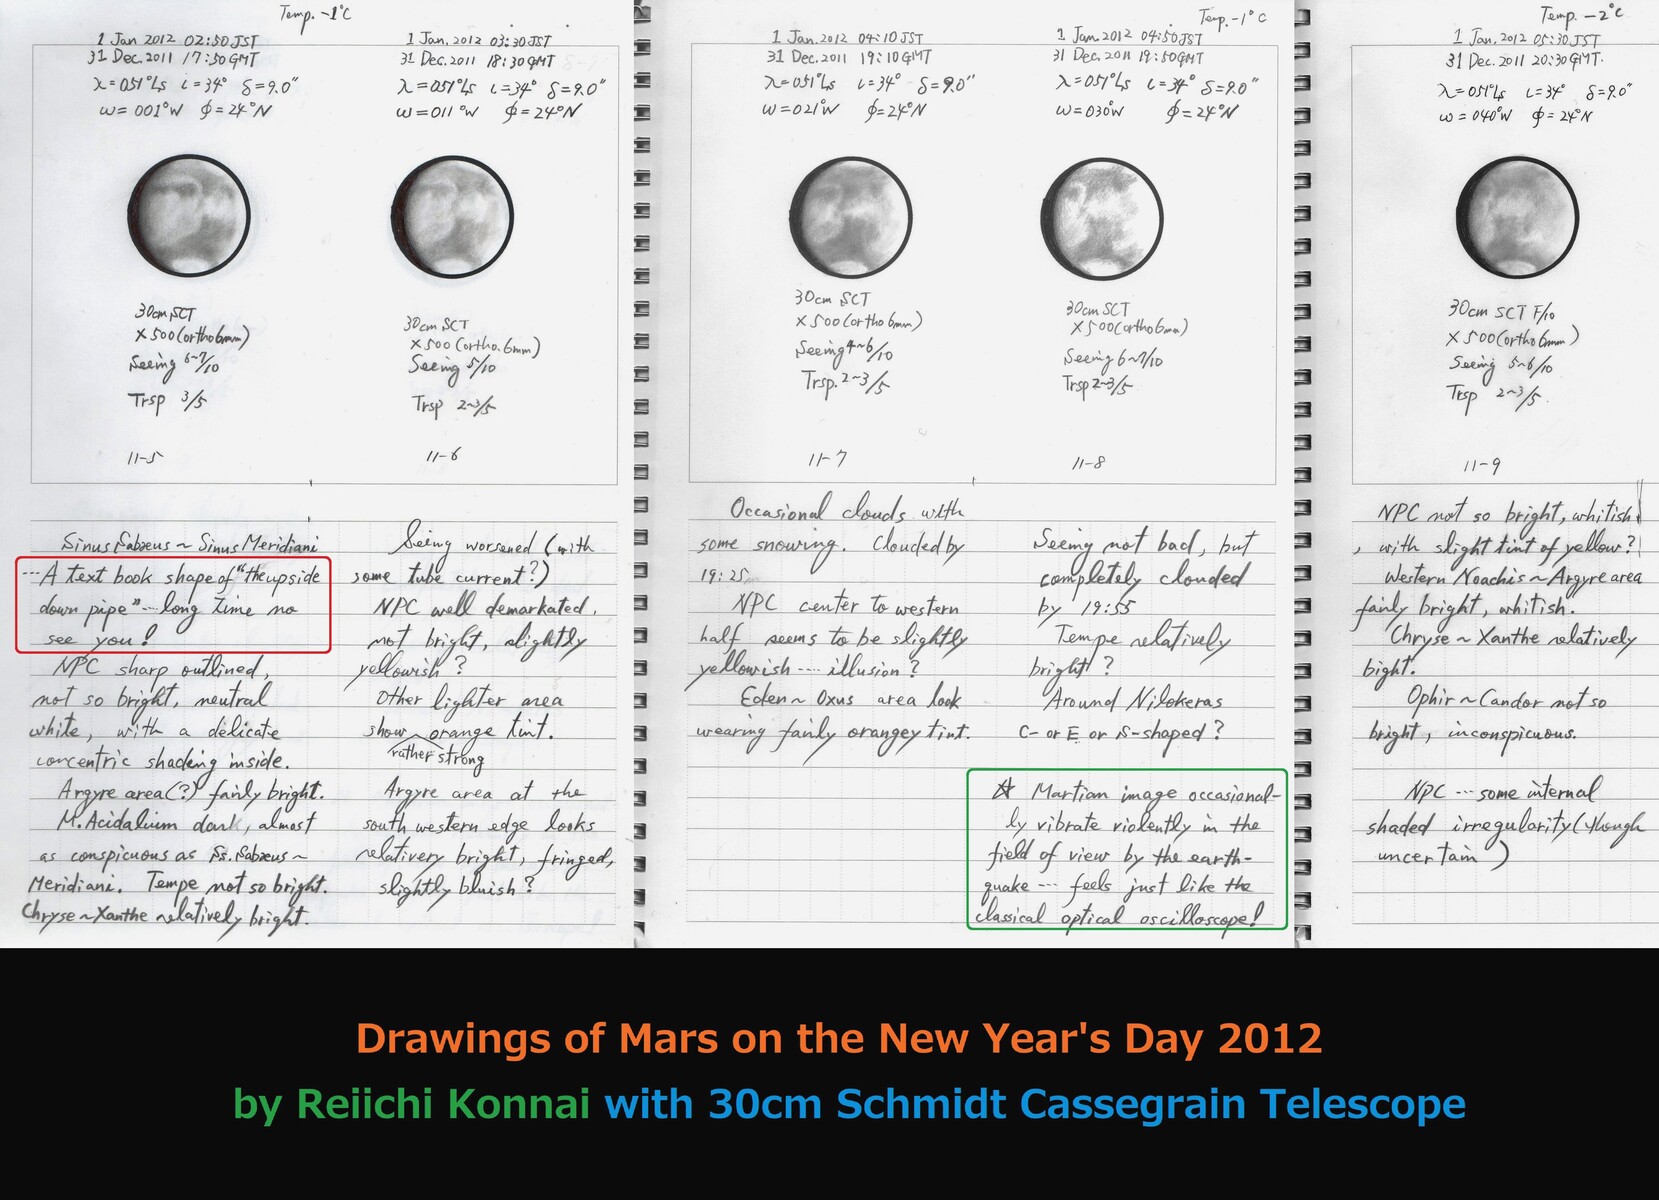 Temp. -1°C
1 Jan 2012 02:50 JST
31 Dec. 2011 17:50 GMT
λ=051°Ls ι=34° δ=9.0"
ω=001°W φ=24°N
30cm SCT
×500 (ortho 6mm)
Seeing 6~7/10
Trsp 3/5
11-5
Sinus Sabaeus ~ Sinus Meridiani
---A text book shape of "the upside
down pipe" --- long time no
see you!
NPC sharp outlined,
not so bright, neutral
white, with a delicate
concentric shading inside.
Argyre area(?) fairly bright.
M. Acidalium dark, almost
as conspicuous as Ss. Sabaeus ~
Meridiani. Tempe not so bright.
Chryse ~ Xanthe relatively bright.
1 Jan. 2012 03:30 JST
31 Dec. 2011 18:30 GMT
λ=051°Ls ι=34° δ=9.0"
ω=011°W φ=24°N
30cm SCT
×500 (ortho. 6mm)
Seeing 5/10
Trsp 2~3/5
11-6
Seing worsened (with
some tube current?)
NPC well demarkated,
not bright, slightly
yellowish?
Other lighter area
show orange tint.
rather strong
Argyre area at the
south western edge looks
relativery bright, fringed,
slightly bluish?
1 Jan. 2012 04:10 JST
31 Dec. 2011 19:10 GMT
λ=051°Ls ι=34° δ=9.0"
ω=021°W φ=24°N
30cm SCT
×500 (ortho 6mm)
Seeing 4~6/10
Trsp. 2~3/5
11-7
Occasional clouds with
some snowing. Clouded by
19:25
NPC center to western
half seems to be slightly
yellowish ---- illusion?
Eden ~ Oxus area look
wearing fairly orangey tint.
Temp. -1°C
1 Jan. 2012 04:50 JST
31 Dec. 2011 19:50 GMT
λ=051°Ls ι=34° δ=9.0"
ω=030°W φ=24°N
30cm SCT
×500 (ortho 6mm)
Seeing 6~7/10
Trsp 2~3/5
11-8
Seeing not bad, but
completely clouded
by 19:55
Tempe relatively
bright?
Around Nilokeras
C- or E or S-shaped?
☆ Martian image occasional-
ly vibrate violently in the
field of view by the earth-
quake --- feels just like the
classical optical oscilloscope!
Temp. -2°C
1 Jan. 2012 05:30 JST
31 Dec. 2011 20:30 GMT.
λ=051°Ls ι=34° δ=9.0"
ω=040°W φ=24°N
30cm SCT F/10
×500 (ortho 6mm)
Seeing 5~6/10
Trsp 2~3/5.
11-9
NPC not so bright, whitish
, with slight tint of yellow?
Western Noachis ~ Argyre area
fairly bright, whitish.
Chryse ~ Xanthe relatively
bight.
Ophir ~ Candor not so
bright, inconspicuous.
NPC --- some internal
shaded irregularity (though
uncertain)
Drawings of Mars on the New Year's Day 2012
by Reiichi Konnai with 30cm Schmidt Cassegrain Telescope